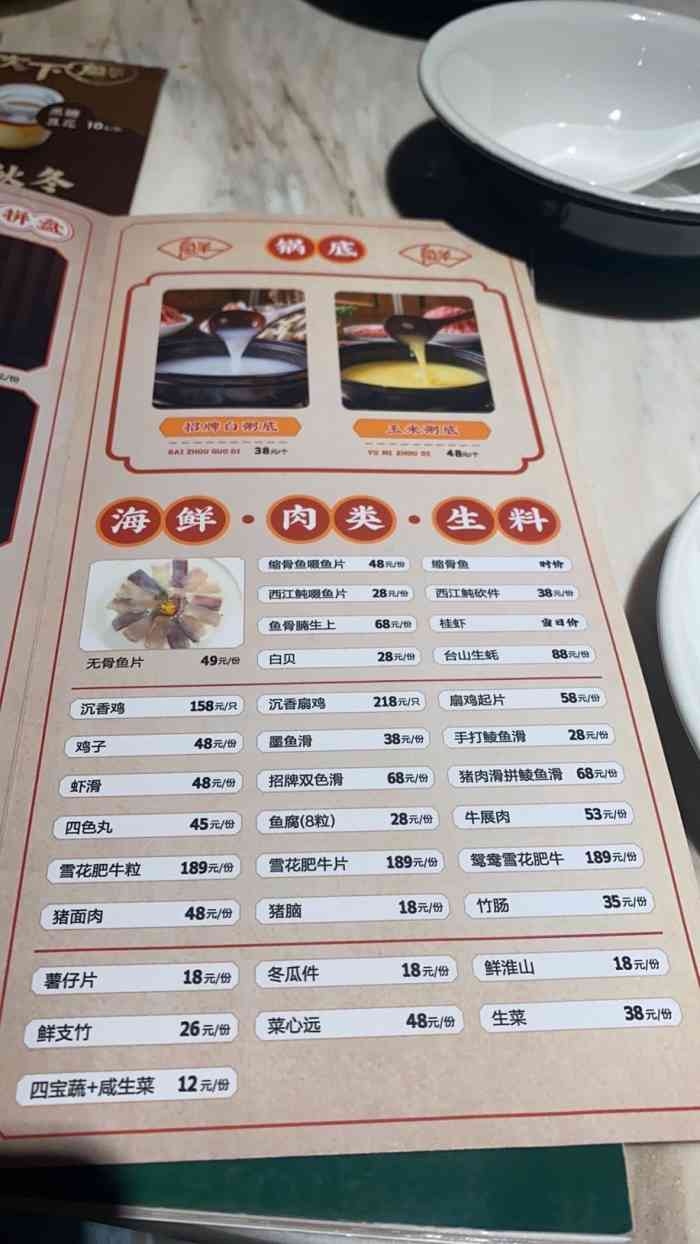 天下
10
秋冬
拼盘
鲜 锅底 鲜
招牌白粥底 玉米粥底
BAI ZHOU GUO DI 38元/个 YU MI ZHOU DI 48元/个
海鲜·肉类·生料
缩骨鱼啜鱼片 48元/份 缩骨鱼 时价
西江鲀啜鱼片 28元/份 西江鲀砍件 38元/份
鱼骨腩生上 68元/份 桂虾 当日价
无骨鱼片 49元/份 白贝 28元/份 台山生蚝 88元/份
沉香鸡 158元/只 沉香扇鸡 218元/只 扇鸡起片 58元/份
鸡子 48元/份 墨鱼滑 38元/份 手打鲮鱼滑 28元/份
虾滑 48元/份 招牌双色滑 68元/份 猪肉滑拼鲮鱼滑 68元/份
四色丸 45元/份 鱼腐(8粒) 28元/份 牛展肉 53元/份
雪花肥牛粒 189元/份 雪花肥牛片 189元/份 鸳鸯雪花肥牛 189元/份
猪面肉 48元/份 猪脑 18元/份 竹肠 35元/份
薯仔片 18元/份 冬瓜件 18元/份 鲜淮山 18元/份
鲜支竹 26元/份 菜心远 48元/份 生菜 38元/份
四宝蔬+咸生菜 12元/份